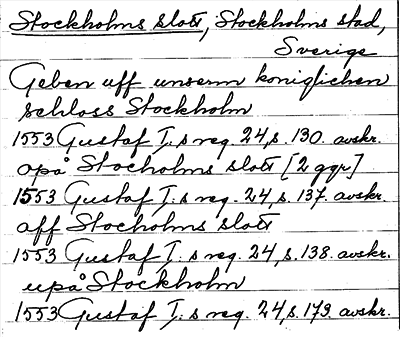 Stockholms slott, Stockholms stad,
Sverige
Geben uff unserm koniglichen
schloss Stockholm
1553 Gustaf I:s reg. 24, s. 130. avskr.
opå Stocholms slott [2 ggr]
1553 Gustaf I:s reg. 24, s. 137. avskr.
aff Stocholms slott
1553 Gustaf I:s reg. 24, s. 138. avskr.
upå Stockholm
1553 Gustaf I:s reg. 24, s. 179. avskr.